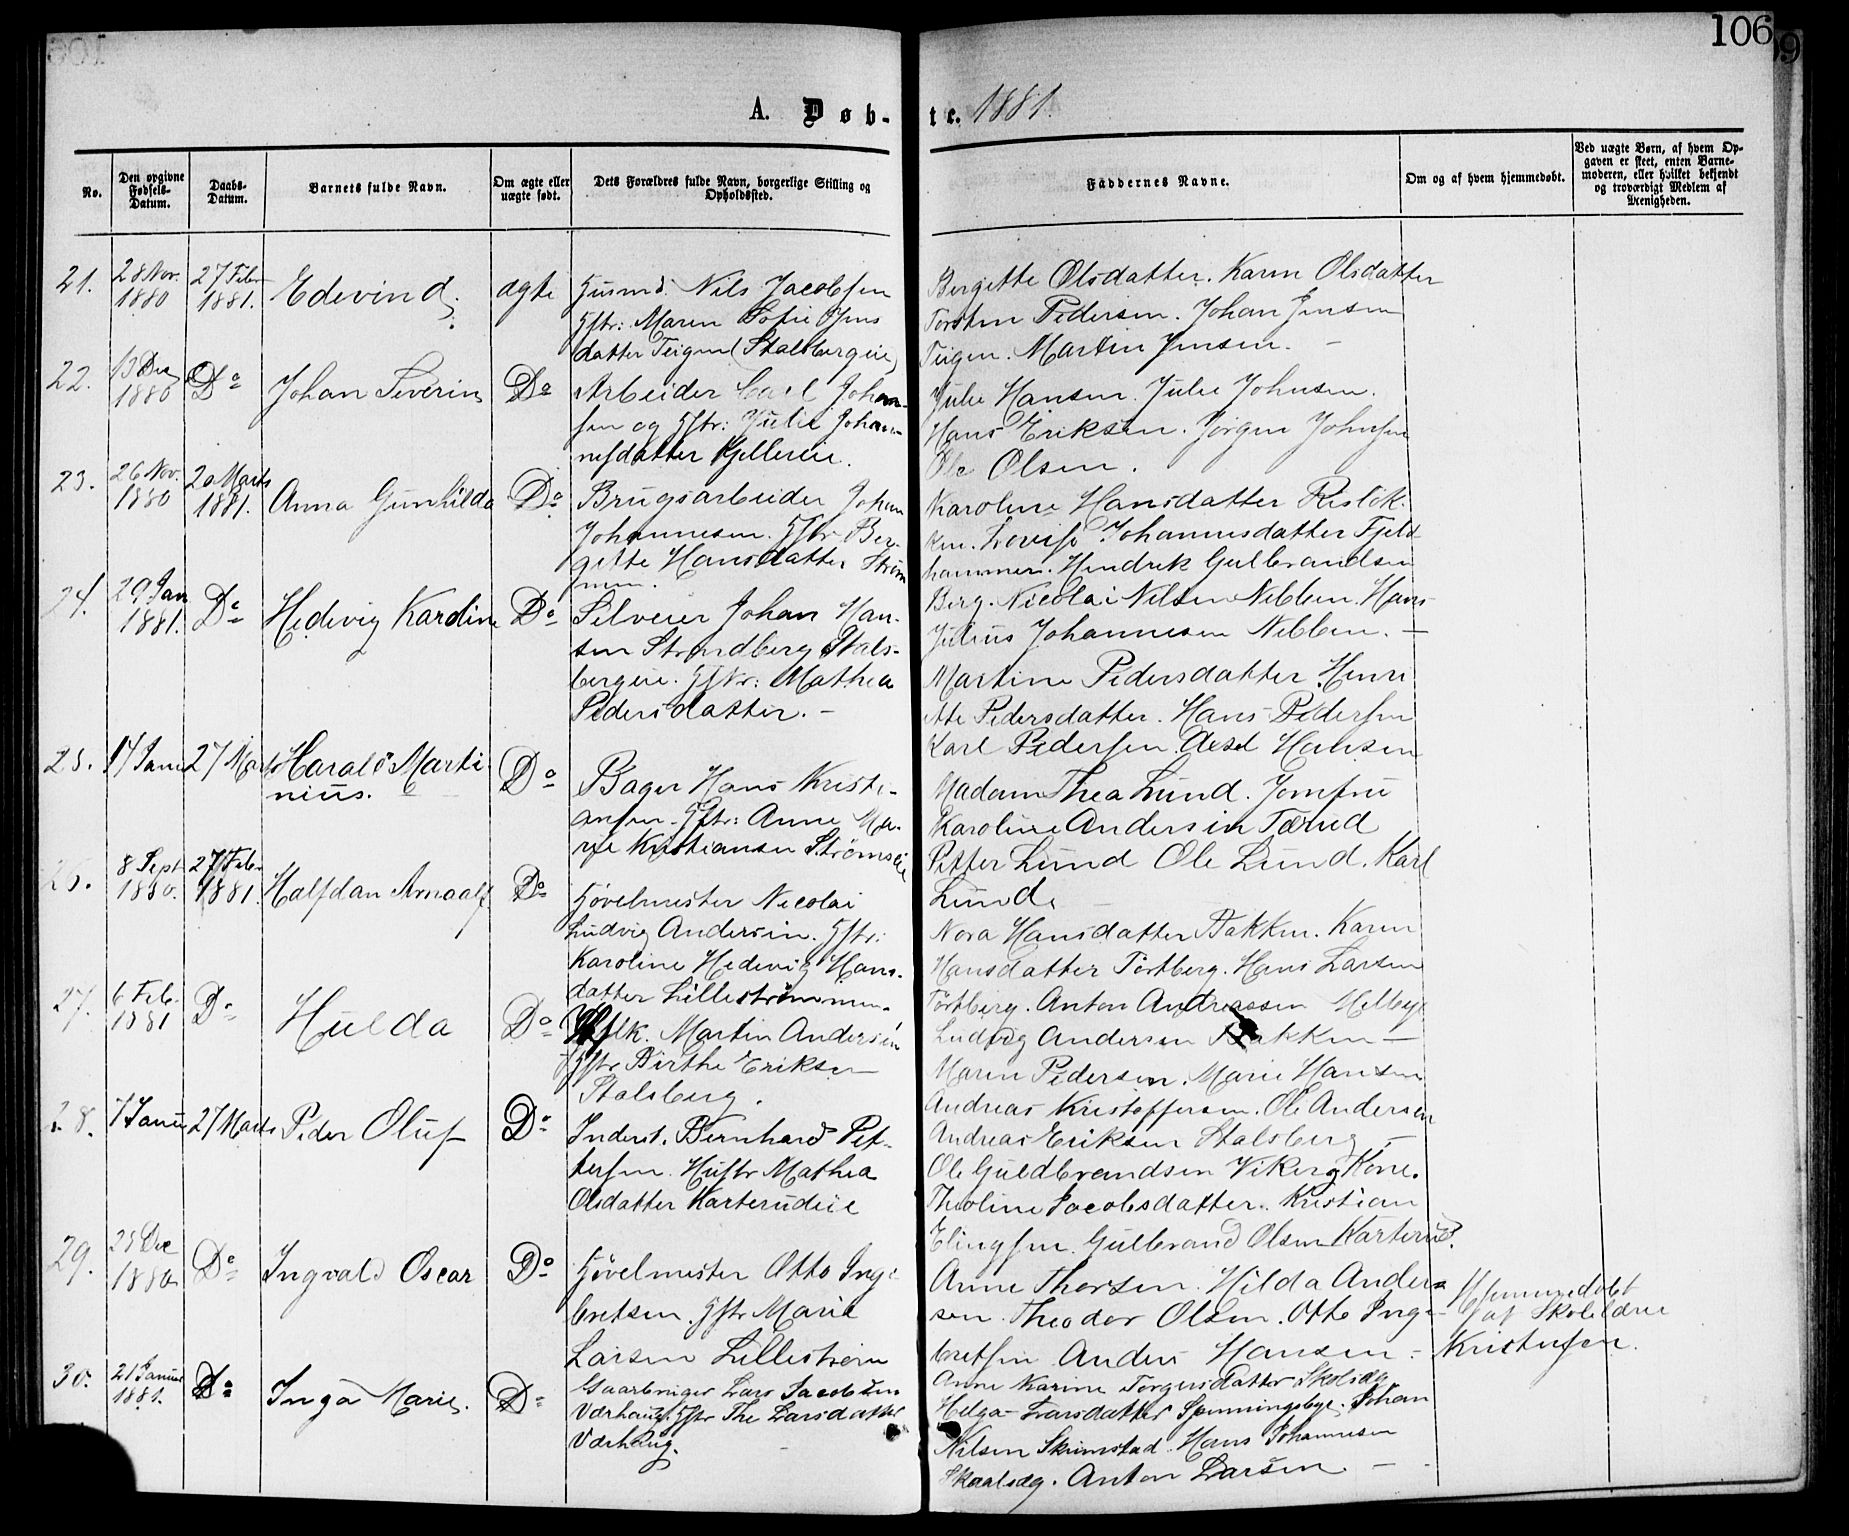 106
A. Døb-
te. 1881.
No.
Den opgivne Fødsels-Datum.
Daabs-Datum.
Barnets fulde Navn.
Om ægte eller uægte født.
Dets Forældres fulde Navn, borgerlige Stilling og Opholdssted.
Faddernes Navne.
Om og af hvem hjemmedøbt.
Ved uægte Børn, af hvem Opgaven er skeet, enten Barnemoderen, eller hvilket bekjendt og troværdigt Medlem af Menigheden.
21.
28 Nov. 1880
27 Febr 1881.
Edevind.
ægte
Husmd. Nils Jacobsen
Hstr: Maren Sofie Jens
datter Teigen (Stalsbergeie)
Bergitte Olsdatter. Karen Olsdatter
Torsten Pedersen. Johan Jensen
Teigen. Martin Jensen. -
22.
13 Dec 1880
Do
Johan Severin
Do
Arbeider Carl Johan-
sen og Hstr: Julie Johan-
nesdatter Kjellereie.
Julie Hansen. Julie Johnsen.
Hans Eriksen. Jørgen Johnsen
Ole Olsen.
23.
26 Nov. 1880
20 Marts 1881.
Anna Gunhilda
Do
Brugsarbeider Johan
Johannesen. Hstr Ber-
gitte Hansdatter Strøm
men.
Karoline Hansdatter Risløk-
ken. Lovise Johannesdatter Fjeld
hammer. Hendrik Gulbrandsen
Berg. Nicolai Nilsen Nibben. Hans
Julius Johannesen Nibben. -
24.
29 Jan 1881.
Do
Hedevig Karoline
Do
Selveier Johan Han-
sen Strandberg Stals-
bergeie. Hstr: Mathea
Pedersdatter. -
Martine Pedersdatter. Henri
ette Pedersdatter. Hans Pedersen
Karl Pedersen. Axel Hansen
25.
14 Janu
27 Marts
Harald Marti
nius.
Do
Bager Hans Kristi-
ansen. Hstr: Anne Ma-
rie Kristiansen Strømseie
Madam Thea Lund. Jomfru
Karoline Andersen Tærud
Petter Lund Ole Lund. Karl
Lund.
26.
8 Sept 1880.
27 Febr 1881
Halfdan Arnoalf
Do
Høvelmester Nicolai
Ludvig Andersen. Hstr:
Karoline Hedevig Hans-
datter Lillestrømmen.
Nora Hansdatter Bakken. Karen
Hansdatter Tørtberg. Hans Larsen
Tørtberg. Anton Andreassen Melbye
Ludvig Andersen Bakken -
27.
6 Feb. 1881
Do
Hulda
Do
Martin Andersen
Hstr Birthe Eriksen
Stalsberg.
Maren Pedersen. Marie Hansen
Andreas Kristoffersen. Ole Andersen
Andreas Eriksen Stalsberg -
28.
7 Janu
27 Marts
Peder Oluf
Do
Inderst. Bernhard Pet-
tersen. Hustr Mathea
Olsdatter Karterudeie
Ole Guldbrandsen Viker. Kone.
Theoline Jacobsdatter. Kristian
Elingsen. Gulbrand Olsen Karterud.
29.
25 Dec 1880
Do
Ingvald Oscar
Do
Høvelmester Otto Inge
bretsen. Hstr Marie
Larsen Lillestrøm
Anne Thorsen. Hilda Ander-
sen. Theodor Olsen. Otto Inge-
bretsen Anders Hansen -
Hjemmedøbt
af Skolelærer
Kristensen.
30.
21 Januar 1881.
Do
Inga Marie.
Do
Gaardbruger Lars Jacobsen
Værhaug. Hstr Thea Larsdatter
Værhaug.
Anne Karine Torgersdatter Skolsæg
Helga Larsdatter Spenningsbye. Johan
Nilsen Skrimstad. Hans Johannesen
Skaalsæg. Anton Larsen -